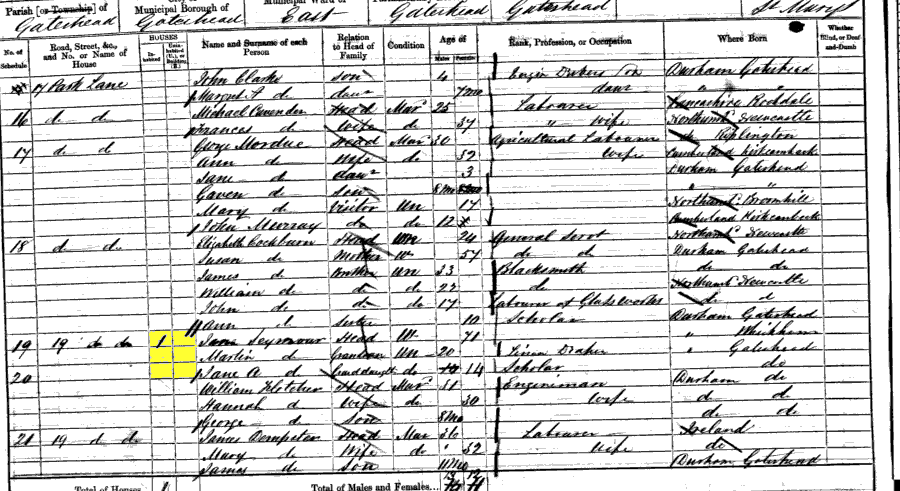 Parish [or Township] of Gateshead
City or Municipal Borough of Gateshead
Municipal Ward of East
Gateshead
Gateshead
St Mary's
No. of Schedule
Road, Street, &c., and No. or Name of House
HOUSES
Inhabited
Uninhabited (U.), or Building (B.)
Name and Surname of each Person
Relation to Head of Family
Condition
Age of
Males
Females
Rank, Profession, or Occupation
Where Born
Whether Blind, or Deaf-and-Dumb
17 Park Lane John Clarke son 4 son Durham Gateshead
Margaret do daur 7 mo daur " "
16 do do Michael Head Mar 25 Labourer Lancashire Rochdale
Frances do Wife do 37 " wife Northumbd Newcastle
17 do do George Mordue Head Mar 30 Agricultural Labourer do
Ann do Wife do 32 Wife Cumberland
Jane do daur 3 Durham Gateshead
Gaven do son 8 Mo " "
Mary do Visitor Un 17 Northumbd Broomhill
John Murray do do 12 Cumberland
18 do do Elizabeth Cockburn Head Un 24 General Servt Northumbd Newcastle
Susan do Mother W 54 do do Durham Gateshead
James do Brother Un 23 Blacksmith do do
William do do do 22 do Northumb Newcastle
John do do do 17 Labourer at Glassworks do d
Ann d Sister 10 Scholar Durham Gateshead
19 19 do do 1 Seymour Head W 71 " Whickham
Martin do Grandson Un 20 Linen Draper " Gateshead
Jane A do Granddaughter do 14 Scholar do
20 William Fletcher Head Mar 31 Engineman Durham do
Hannah d Wife do 30 Wife do do
George do Son 8 Mo do do
21 19 do do James Dempster Head Mar 36 Labourer Ireland
Mary do Wife do 32 Wife do
James do Son 11 Mo Durham Gateshead
Total of Houses 1
Total of Males and Females